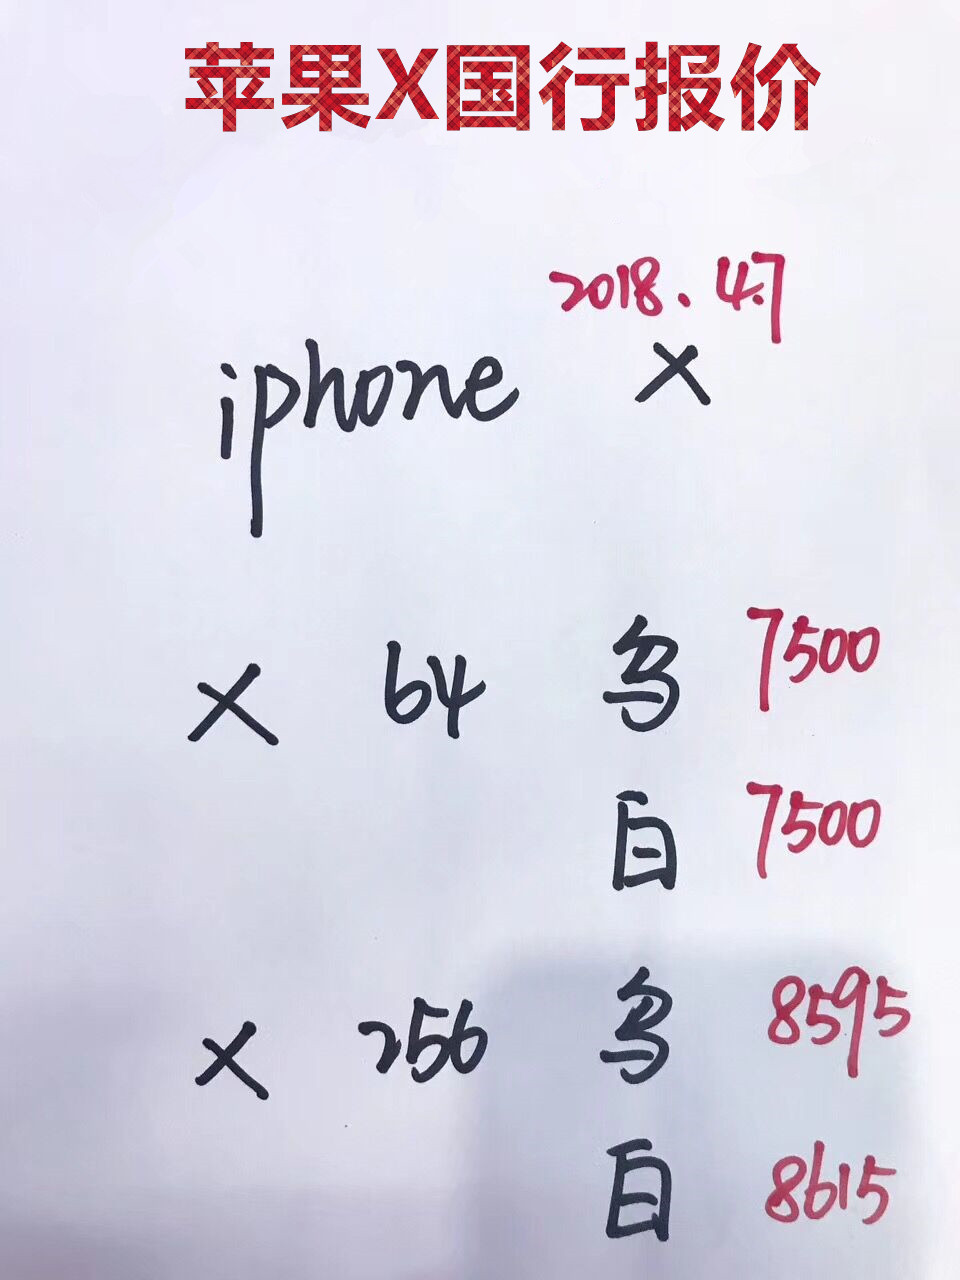 苹果X国行报价
2018.4.7
iphone X
X 64 乌 7500
白 7500
X 256 乌 8595
白 8615